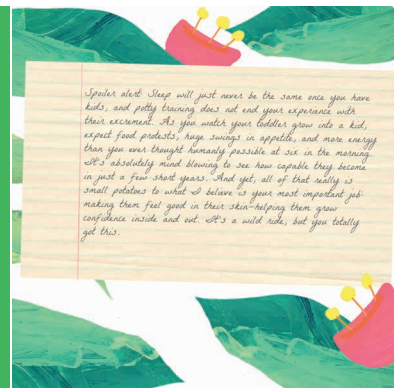 Spoiler alert: Sleep will just never be the same once you have
kids, and potty training does not end your experience with
their excrement. As you watch your toddler grow into a kid,
expect food protests, huge swings in appetite, and more energy
than you ever thought humanly possible at six in the morning.
It's absolutely mind blowing to see how capable they become
in just a few short years. And yet, all of that really is
small potatoes to what I believe is your most important job:
making them feel good in their skin-helping them grow
confidence inside and out. It's a wild ride, but you totally
got this.